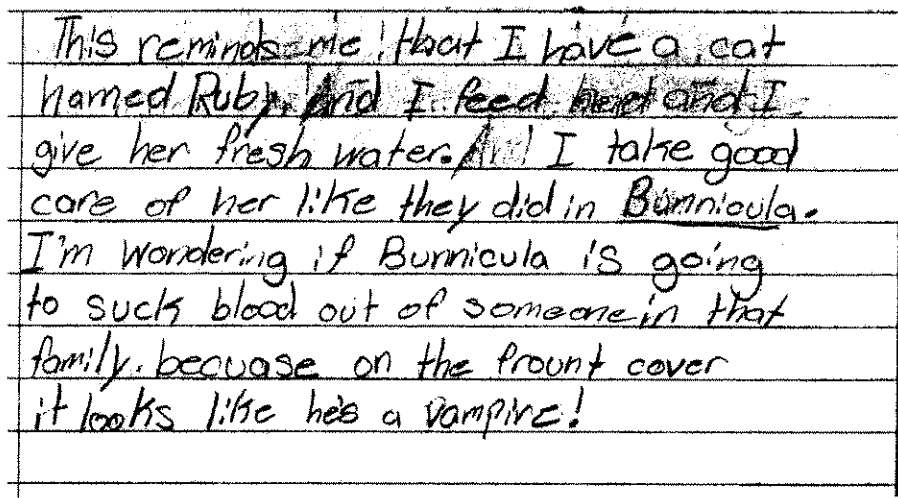 This reminds me that I have a cat
named Ruby. And I feed her and I
give her fresh water. And I take good
care of her like they did in Bunnicula.
I'm wondering if Bunnicula is going
to suck blood out of someone in that
family. becuase on the frount cover
it looks like he's a vampire!